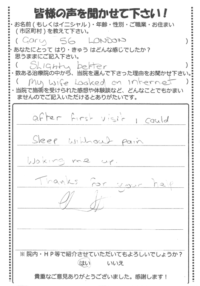 皆様の声を聞かせて下さい!
お名前(もしくはイニシャル)・年齢・性別・ご職業・お住まい
(市区町村)を教えて下さい。
( Gary 56 LONDON )
あなたにとって はり・きゅう はどんな感じでしたか?
思うままにご記入下さい。
( Slightly better )
数ある治療院の中から、当院を選んで下さった理由をお聞かせ下さい。
( my wife looked on internet )
・当院で施術を受けられた感想や体験談など、どんなことでもかまい
ませんのでご記入いただけるとありがたいです。
after first visit I could
sleep without pain
waking me up.
Thanks for your help
※院内・HP等で紹介させていただいてもよろしいでしょうか?
はい いいえ
貴重なご意見ありがとうございました。感謝します!